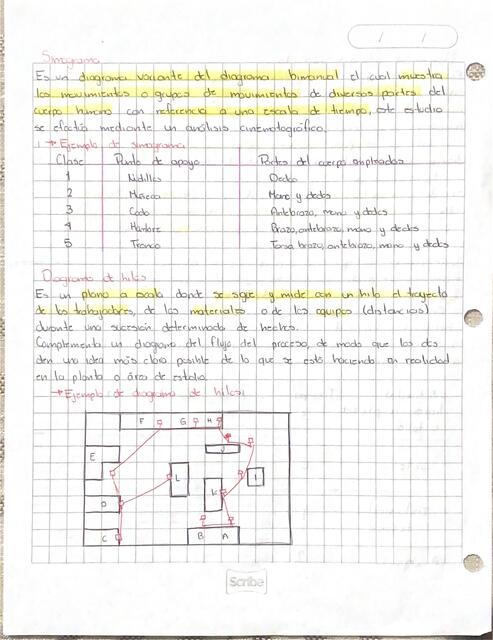 Simograma
Es un diagrama variante del diagrama bimanual el cual muestra
los movimientos o grupos de movimientos de diversos partes del
cuerpo humano con referencia a una escala de tiempo, este estudio
se efectúa mediante un análisis cinematográfico.
→ Ejemplo de simograma
Clase Punto de apoyo Partes del cuerpo empleados
1 Nudillos Dedo
2 Muñeca Mano y dedos
3 Codo Antebrazo, mano y dedos
4 Hombro Brazo, antebrazo, mano y dedos
5 Tronco Torso, brazo, antebrazo, mano y dedos
Diagrama de hilos
Es un plano a escala dont se sigue y mide con un hilo el trayecto
de los trabajadores, de los materiales o de los equipos (distancias)
durante una sucesión determinado de hechos.
Complementa un diagrama del flujo del proceso, de modo que los dos
den una idea más clara posible de lo que se está haciendo en realidad
en la planta o área de estudio.
→ Ejemplo de diagrama de hilos:
F G H
E J
L I
D K
C B A
Scribe